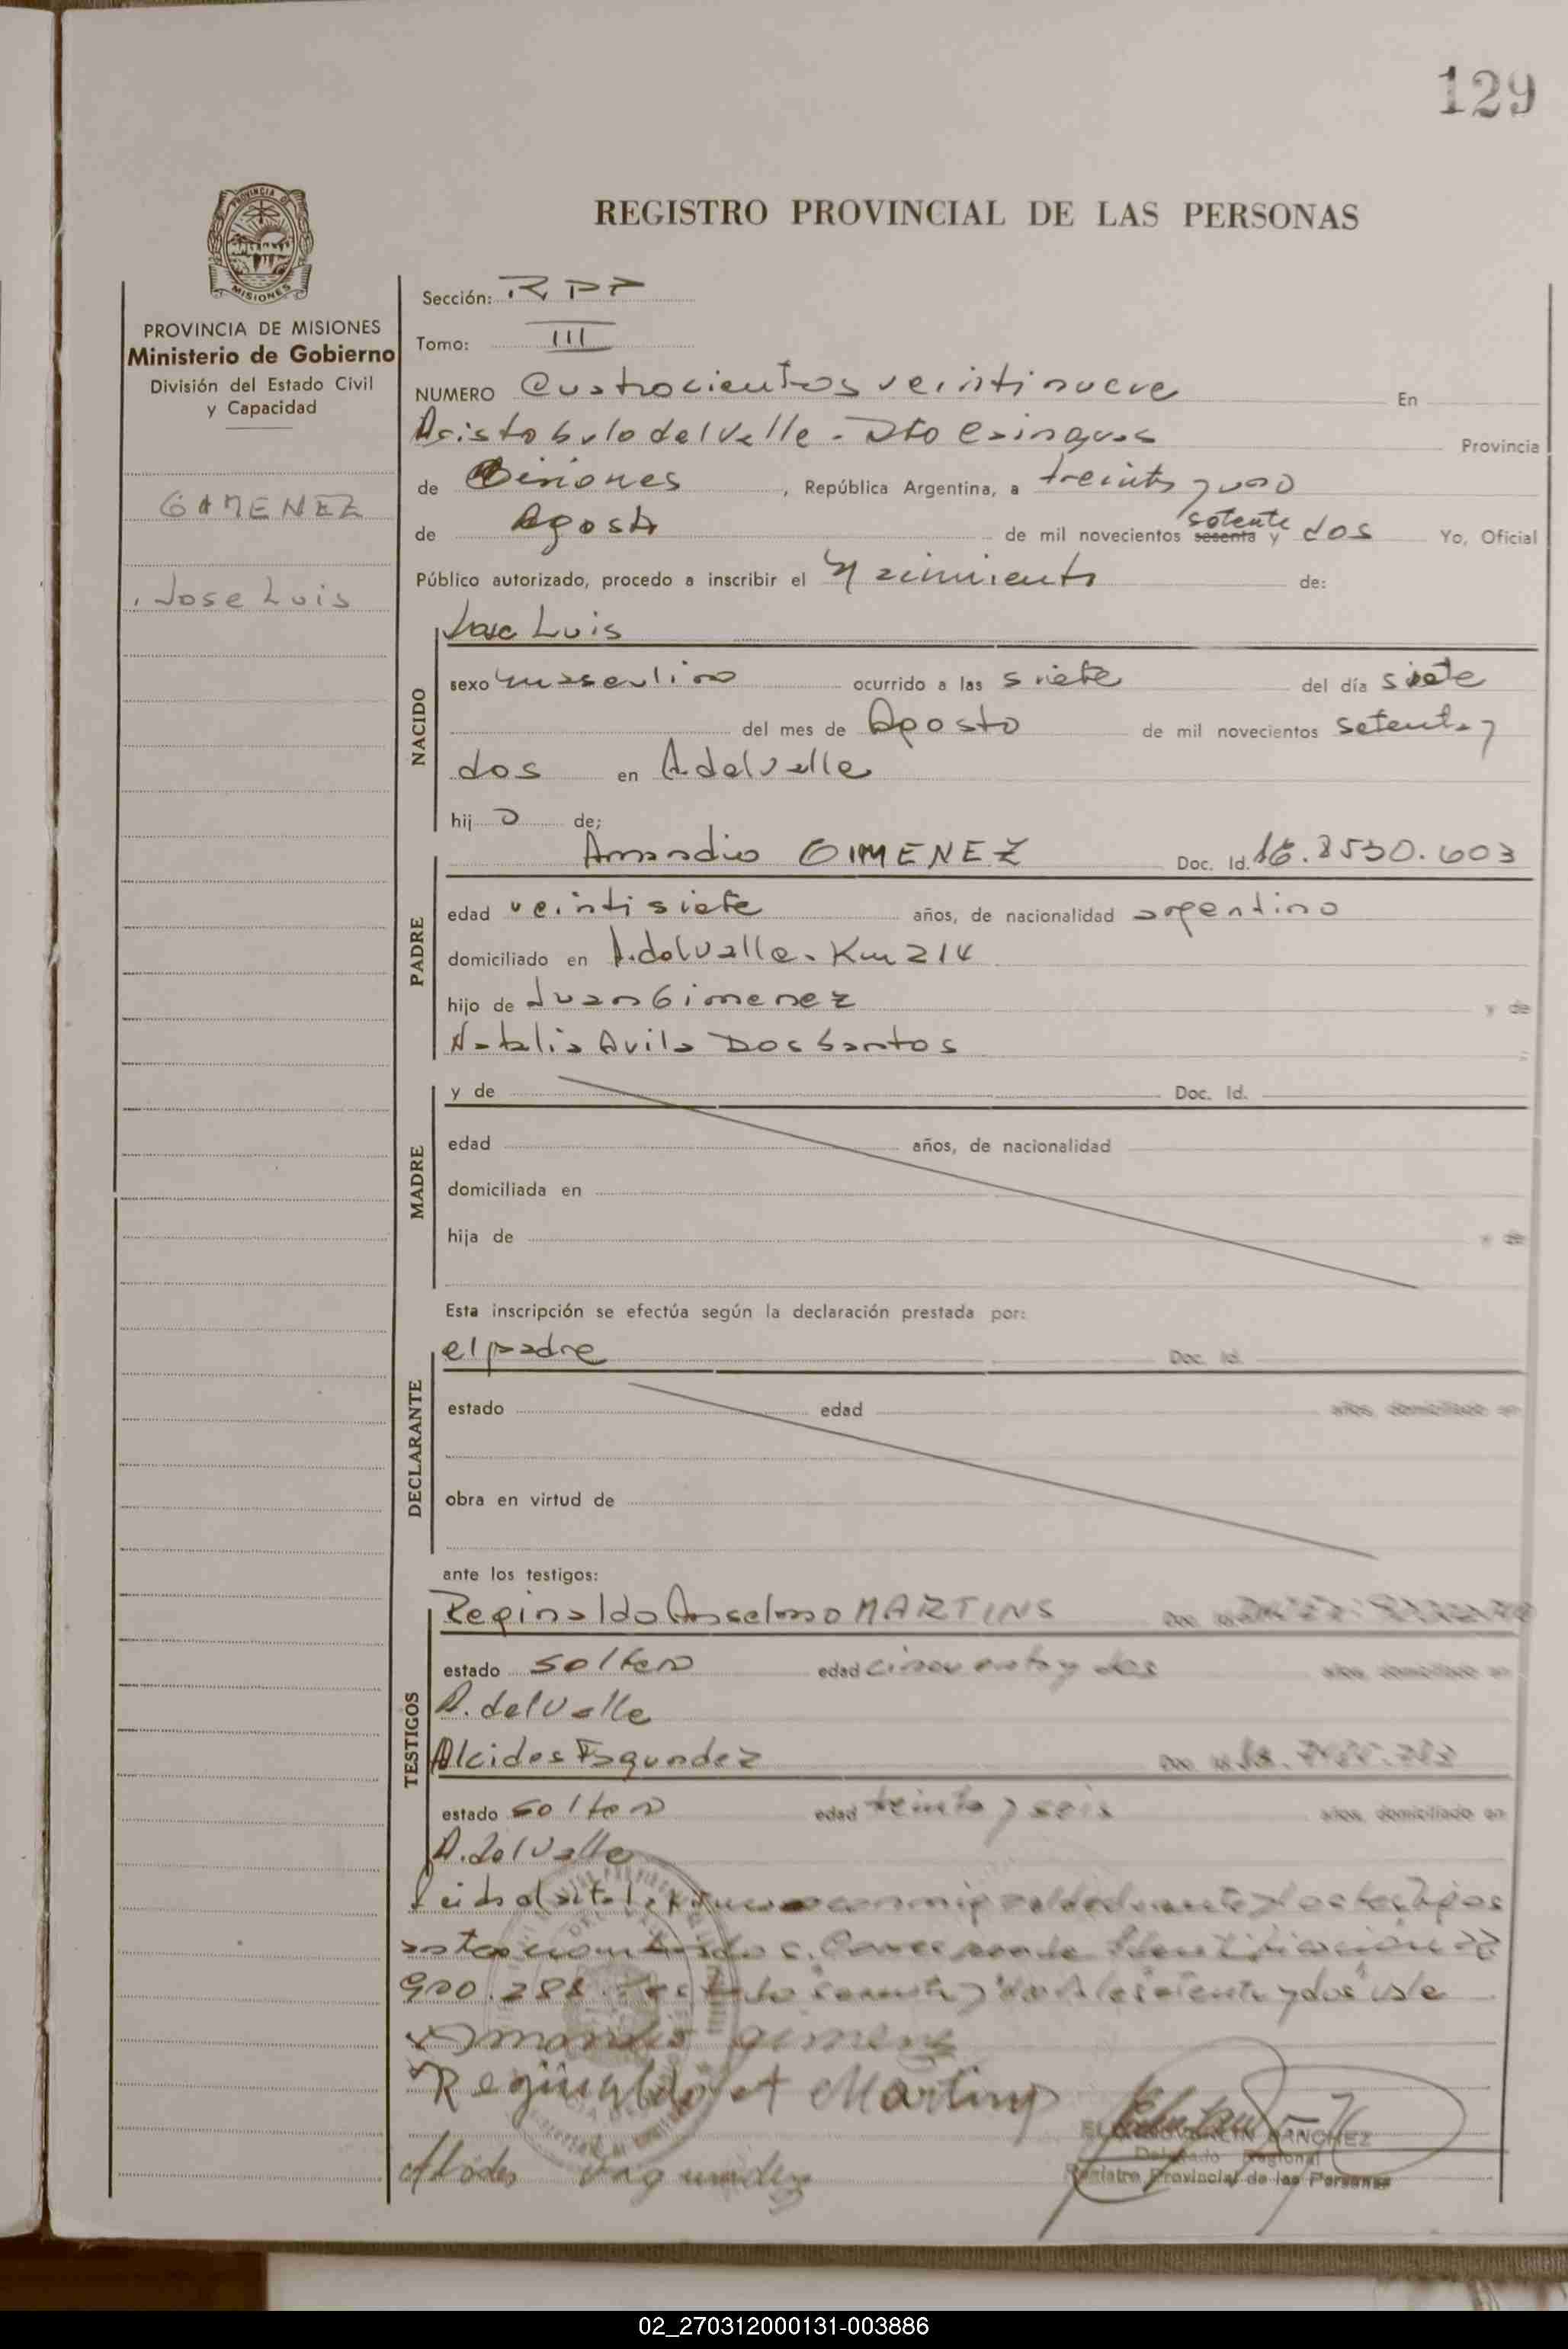 129
REGISTRO PROVINCIAL DE LAS PERSONAS
PROVINCIA DE
MISIONES
PROVINCIA DE MISIONES
Ministerio de Gobierno
División del Estado Civil
y Capacidad
GIMENEZ
Jose Luis
Sección: R P P
Tomo: III
NUMERO Cuatrocientos veintinueve En
Aristobulo del Valle - Dto Cainguas Provincia
de Misiones, República Argentina, a treinta y uno
de Agosto de mil novecientos sesenta setenta y dos Yo, Oficial
Público autorizado, procedo a inscribir el Nacimiento de:
Jose Luis
NACIDO
sexo masculino ocurrido a las siete del día siete
del mes de Agosto de mil novecientos setenta y
dos en A. del Valle
hij o de;
PADRE
Amandio GIMENEZ Doc. Id.
edad veintisiete años, de nacionalidad argentino
domiciliado en A. del Valle - Km 214
hijo de Juan Gimenez y de
Natalia Avila Dos Santos
MADRE
y de Doc. Id.
edad años, de nacionalidad
domiciliada en
hija de y de
Esta inscripción se efectúa según la declaración prestada por:
DECLARANTE
el padre Doc. Id.
estado edad años, domiciliado en
obra en virtud de
ante los testigos:
TESTIGOS
Reginaldo Anselmo MARTINS
estado soltero edad cincuenta y dos años, domiciliado en
A. del Valle
Alcides Fagundez
estado soltero edad treinta y seis años, domiciliado en
A. del Valle
Leida el acta la firman conmigo el declarante y los testigos
antes nombrados. Corresponde Identificación
900.288. Testado "sesenta y" setenta y dos vale
Amandio gimenez
Reginaldo A Martins
Alcides Fagundez
SANCHEZ
Delegado Regional
Registro Provincial de las Personas
02_270312000131-003886